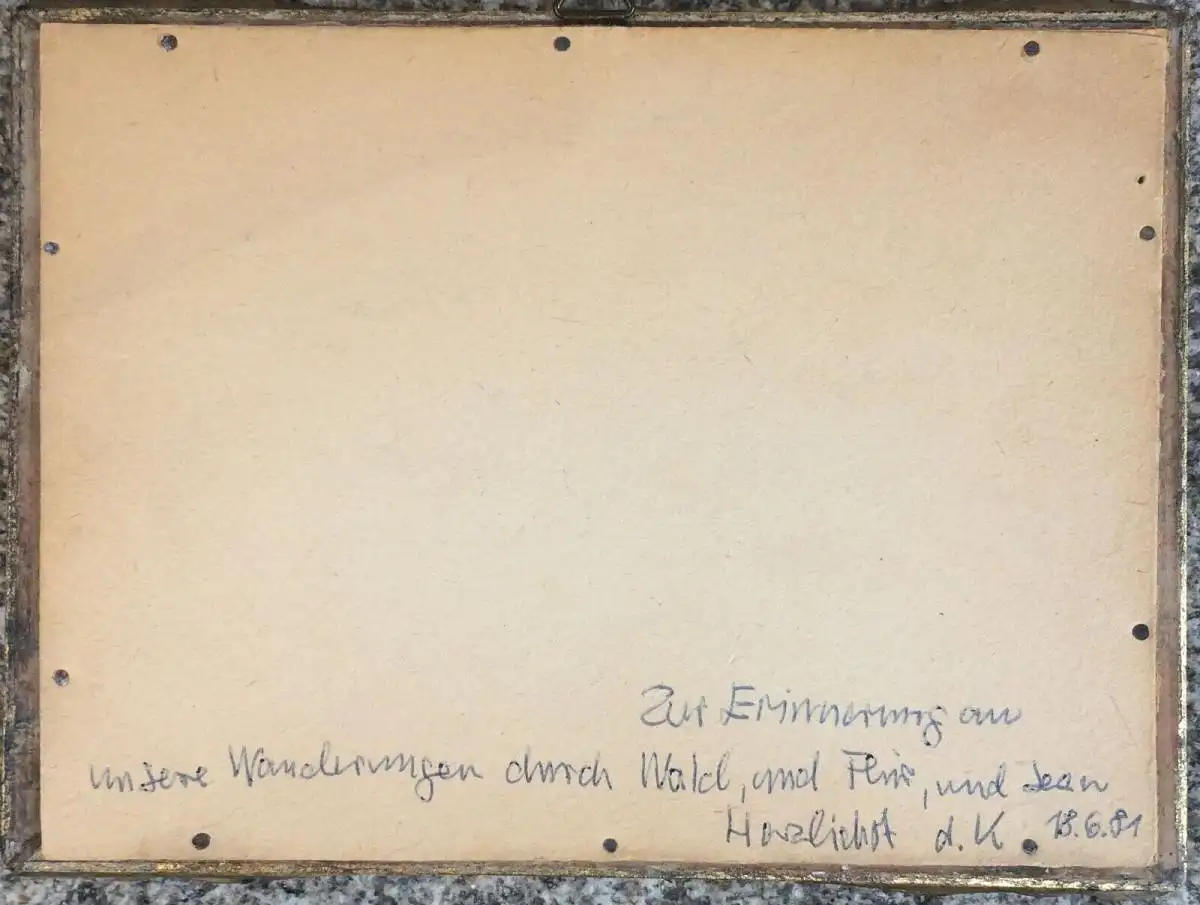 Zur Erinnerung an
unsere Wanderungen durch Wald, und Flur, und
Herzlichst d. K. 18.6.81